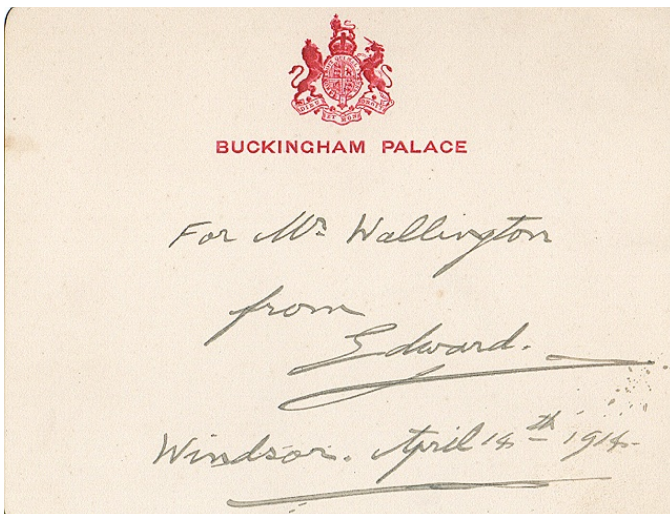 DIEU ET MON DROIT
BUCKINGHAM PALACE
For Mr Wallington
from
Edward.
Windsor. April 14th 1914.